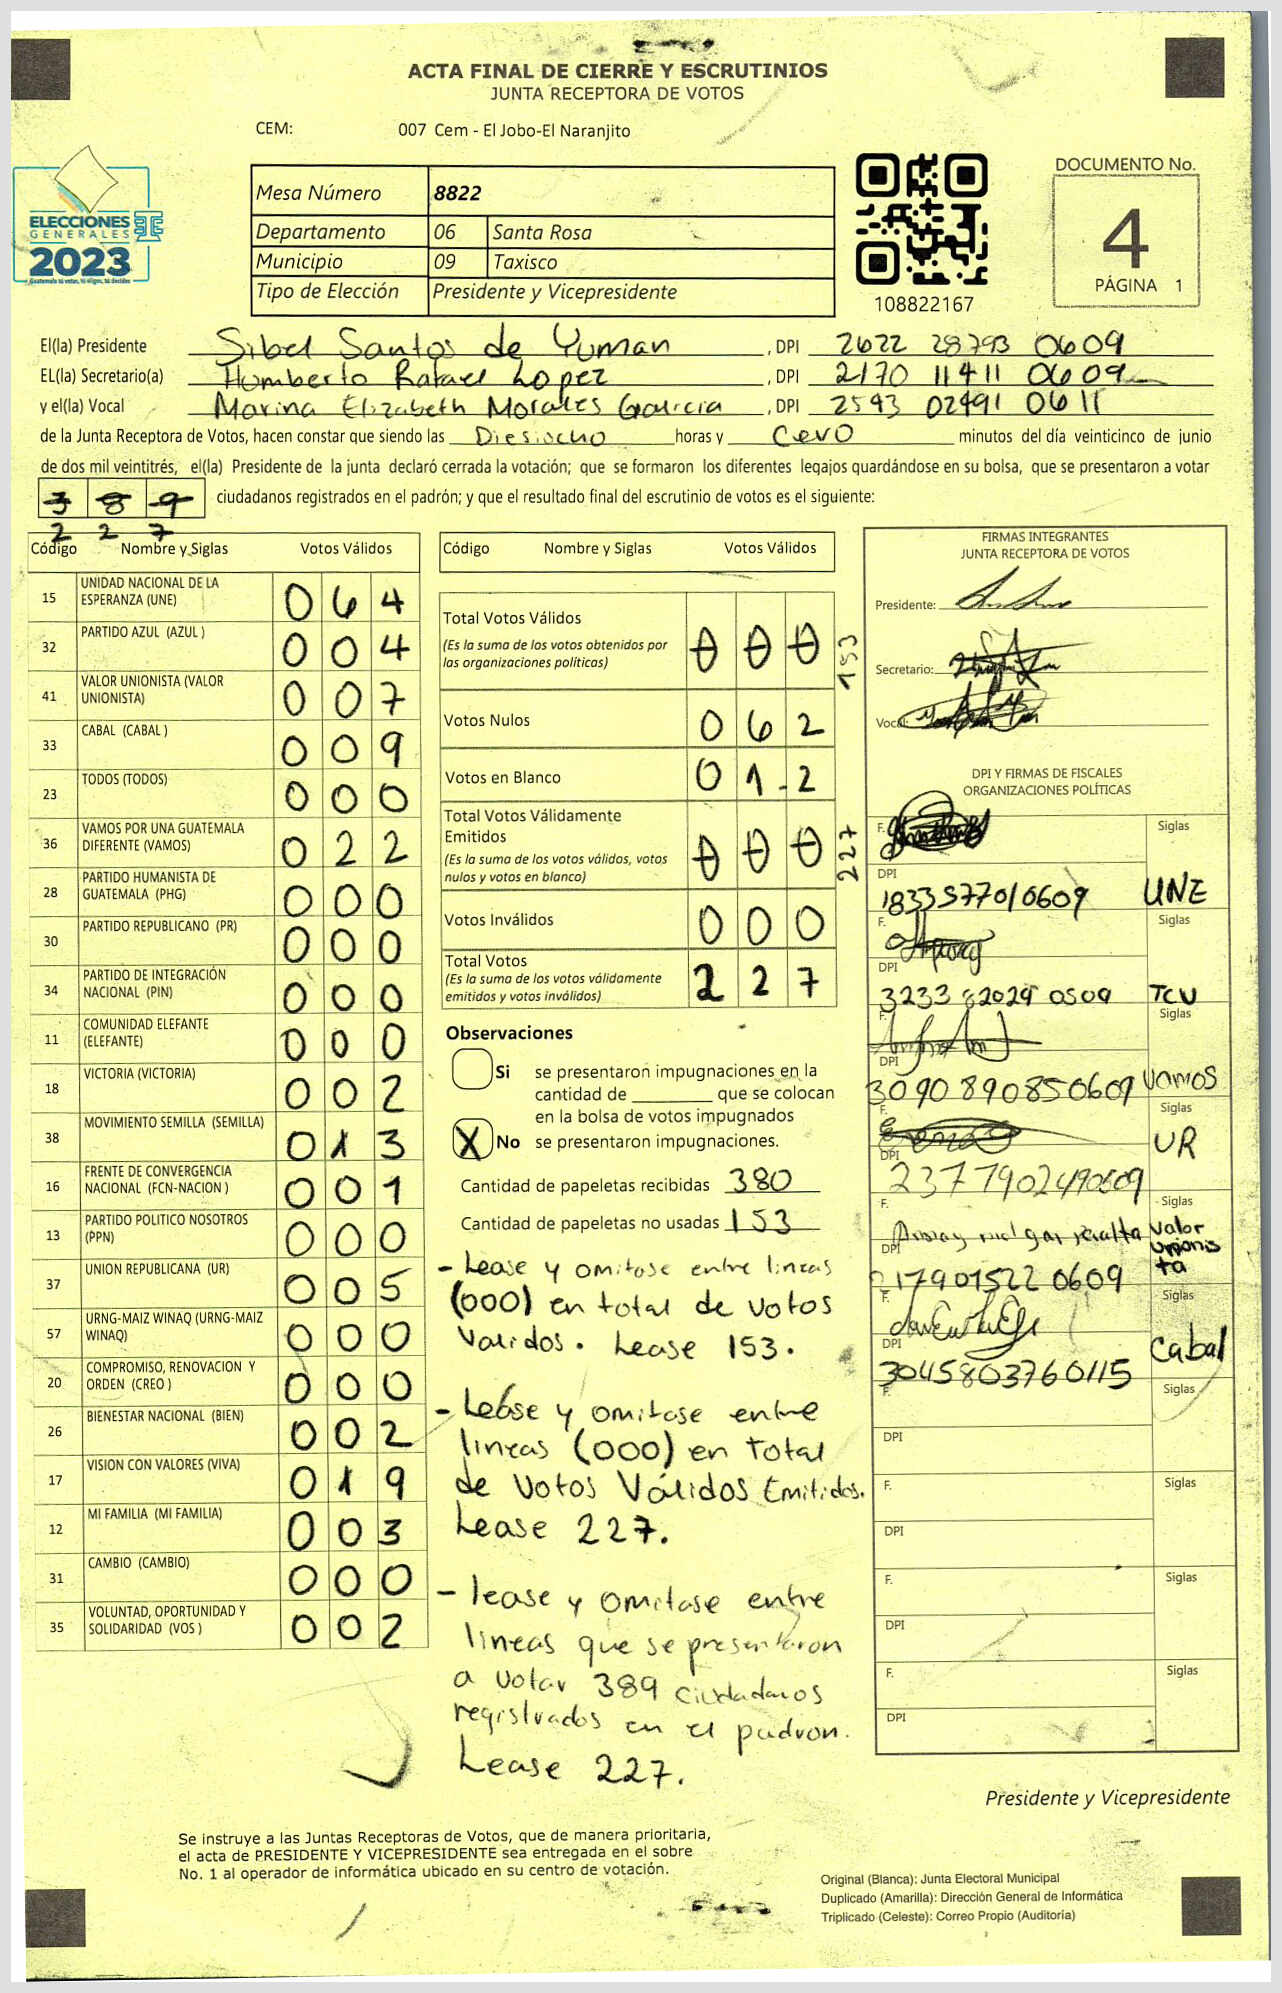 ACTA FINAL DE CIERRE Y ESCRUTINIOS
JUNTA RECEPTORA DE VOTOS
CEM: 007 Cem - El Jobo-El Naranjito
ELECCIONES
GENERALES
2023
Mesa Número 8822
Departamento 06 Santa Rosa
Municipio 09 Taxisco
Tipo de Elección Presidente y Vicepresidente
108822167
DOCUMENTO No.
4
PÁGINA 1
El(la) Presidente Sibel Santos de Yuman , DPI 2622 28793 0609
EL(la) Secretario(a) Humberto Rafael Lopez , DPI 2170 11411 0609
y el(la) Vocal Marina Elizabeth Morales Garicia , DPI 2593 02491 0611
de la Junta Receptora de Votos, hacen constar que siendo las Diesiocho horas y Cero minutos del día veinticinco de junio
de dos mil veintitrés, el(la) Presidente de la junta declaró cerrada la votación; que se formaron los diferentes legajos quardándose en su bolsa, que se presentaron a votar
389 ciudadanos registrados en el padrón; y que el resultado final del escrutinio de votos es el siguiente:
2 2 7
Código Nombre y Siglas Votos Válidos
15 UNIDAD NACIONAL DE LA ESPERANZA (UNE) 0 6 4
32 PARTIDO AZUL (AZUL ) 0 0 4
41 VALOR UNIONISTA (VALOR UNIONISTA) 0 0 7
33 CABAL (CABAL ) 0 0 9
23 TODOS (TODOS) 0 0 0
36 VAMOS POR UNA GUATEMALA DIFERENTE (VAMOS) 0 2 2
28 PARTIDO HUMANISTA DE GUATEMALA (PHG) 0 0 0
30 PARTIDO REPUBLICANO (PR) 0 0 0
34 PARTIDO DE INTEGRACIÓN NACIONAL (PIN) 0 0 0
11 COMUNIDAD ELEFANTE (ELEFANTE) 0 0 0
18 VICTORIA (VICTORIA) 0 0 2
38 MOVIMIENTO SEMILLA (SEMILLA) 0 1 3
16 FRENTE DE CONVERGENCIA NACIONAL (FCN-NACION ) 0 0 1
13 PARTIDO POLITICO NOSOTROS (PPN) 0 0 0
37 UNION REPUBLICANA (UR) 0 0 5
57 URNG-MAIZ WINAQ (URNG-MAIZ WINAQ) 0 0 0
20 COMPROMISO, RENOVACION Y ORDEN (CREO ) 0 0 0
26 BIENESTAR NACIONAL (BIEN) 0 0 2
17 VISION CON VALORES (VIVA) 0 1 9
12 MI FAMILIA (MI FAMILIA) 0 0 3
31 CAMBIO (CAMBIO) 0 0 0
35 VOLUNTAD, OPORTUNIDAD Y SOLIDARIDAD (VOS ) 0 0 2
Código Nombre y Siglas Votos Válidos
Total Votos Válidos
(Es la suma de los votos obtenidos por
las organizaciones políticas)
0 0 0 153
Votos Nulos 0 6 2
Votos en Blanco 0 1 2
Total Votos Válidamente
Emitidos
(Es la suma de los votos válidos, votos
nulos y votos en blanco)
0 0 0 227
Votos Inválidos 0 0 0
Total Votos
(Es la suma de los votos válidamente
emitidos y votos inválidos)
2 2 7
Observaciones
Si se presentaron impugnaciones en la
cantidad de ________ que se colocan
en la bolsa de votos impugnados
X No se presentaron impugnaciones.
Cantidad de papeletas recibidas 380
Cantidad de papeletas no usadas 153
- Lease y omitase entre lineas
(000) en total de votos
validos. Lease 153.
- Lease y omitase entre
lineas (000) en Total
de Votos Válidos Emitidos.
Lease 227.
- lease y omitase entre
lineas que se presentaron
a votar 389 ciudadanos
registrados en el padron.
Lease 227.
FIRMAS INTEGRANTES
JUNTA RECEPTORA DE VOTOS
Presidente:
Secretario:
Vocal:
DPI Y FIRMAS DE FISCALES
ORGANIZACIONES POLÍTICAS
F. Siglas
DPI 1833577010609 UNE
F. Siglas
DPI 3233 82029 0509 TCU
F. Siglas
DPI 3090890850609 VAMOS
F. Siglas
DPI 2377902490609 UR
F. Siglas
DPI 17901522 0609 Valor Unionista
F. Siglas
DPI 3045803760115 Cabal
F. Siglas
DPI
F. Siglas
DPI
F. Siglas
DPI
F. Siglas
DPI
Presidente y Vicepresidente
Se instruye a las Juntas Receptoras de Votos, que de manera prioritaria,
el acta de PRESIDENTE Y VICEPRESIDENTE sea entregada en el sobre
No. 1 al operador de informática ubicado en su centro de votación.
Original (Blanca): Junta Electoral Municipal
Duplicado (Amarilla): Dirección General de Informática
Triplicado (Celeste): Correo Propio (Auditoría)